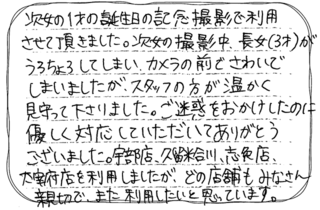 次女の1才の誕生日の記念撮影で利用
させて頂きました。次女の撮影中、長女(3才)が
うろちょろしてしまい、カメラの前でさわいで
しまいましたが、スタッフの方が温かく
見守って下さりました。ご迷惑をおかけしたのに
優しく対応していただいてありがとう
ございました。宇部店、久留米合川、志免店、
大宰府店を利用しましたが、どの店舗もみなさん
親切で、また利用したいと思っています。